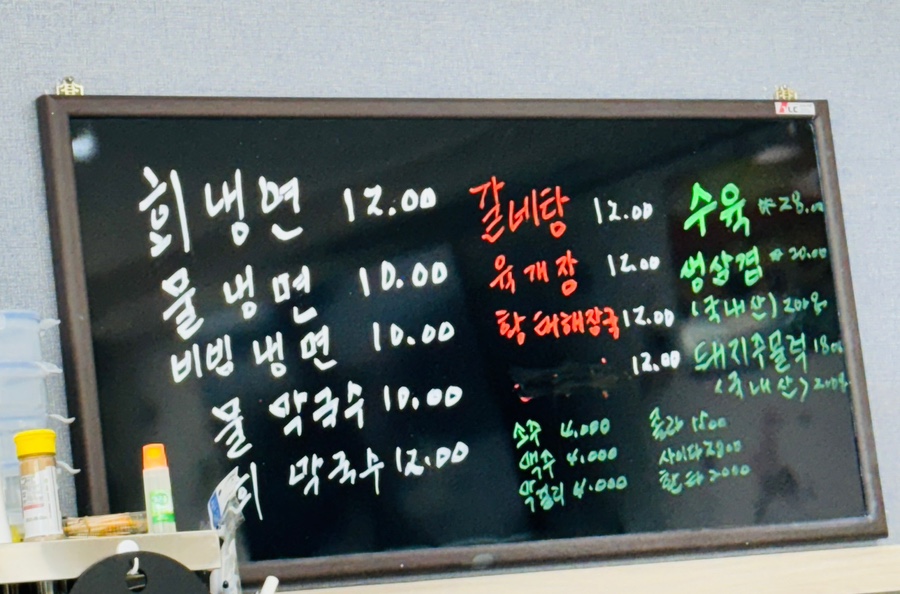 회냉면 12.00
물냉면 10.00
비빔냉면 10.00
물 막국수 10.00
회 막국수 12.00
갈네탕 12.00
육개장 12.00
황태해장국 12.00
12.00
소주 4.000
맥주 4.000
막걸리 4.000
수육 ₩28.00
생삼겹 ₩20.00
(국내산) 200g
돼지주물럭 18.00
(국내산) 200g
콜라
사이다
환타 2000